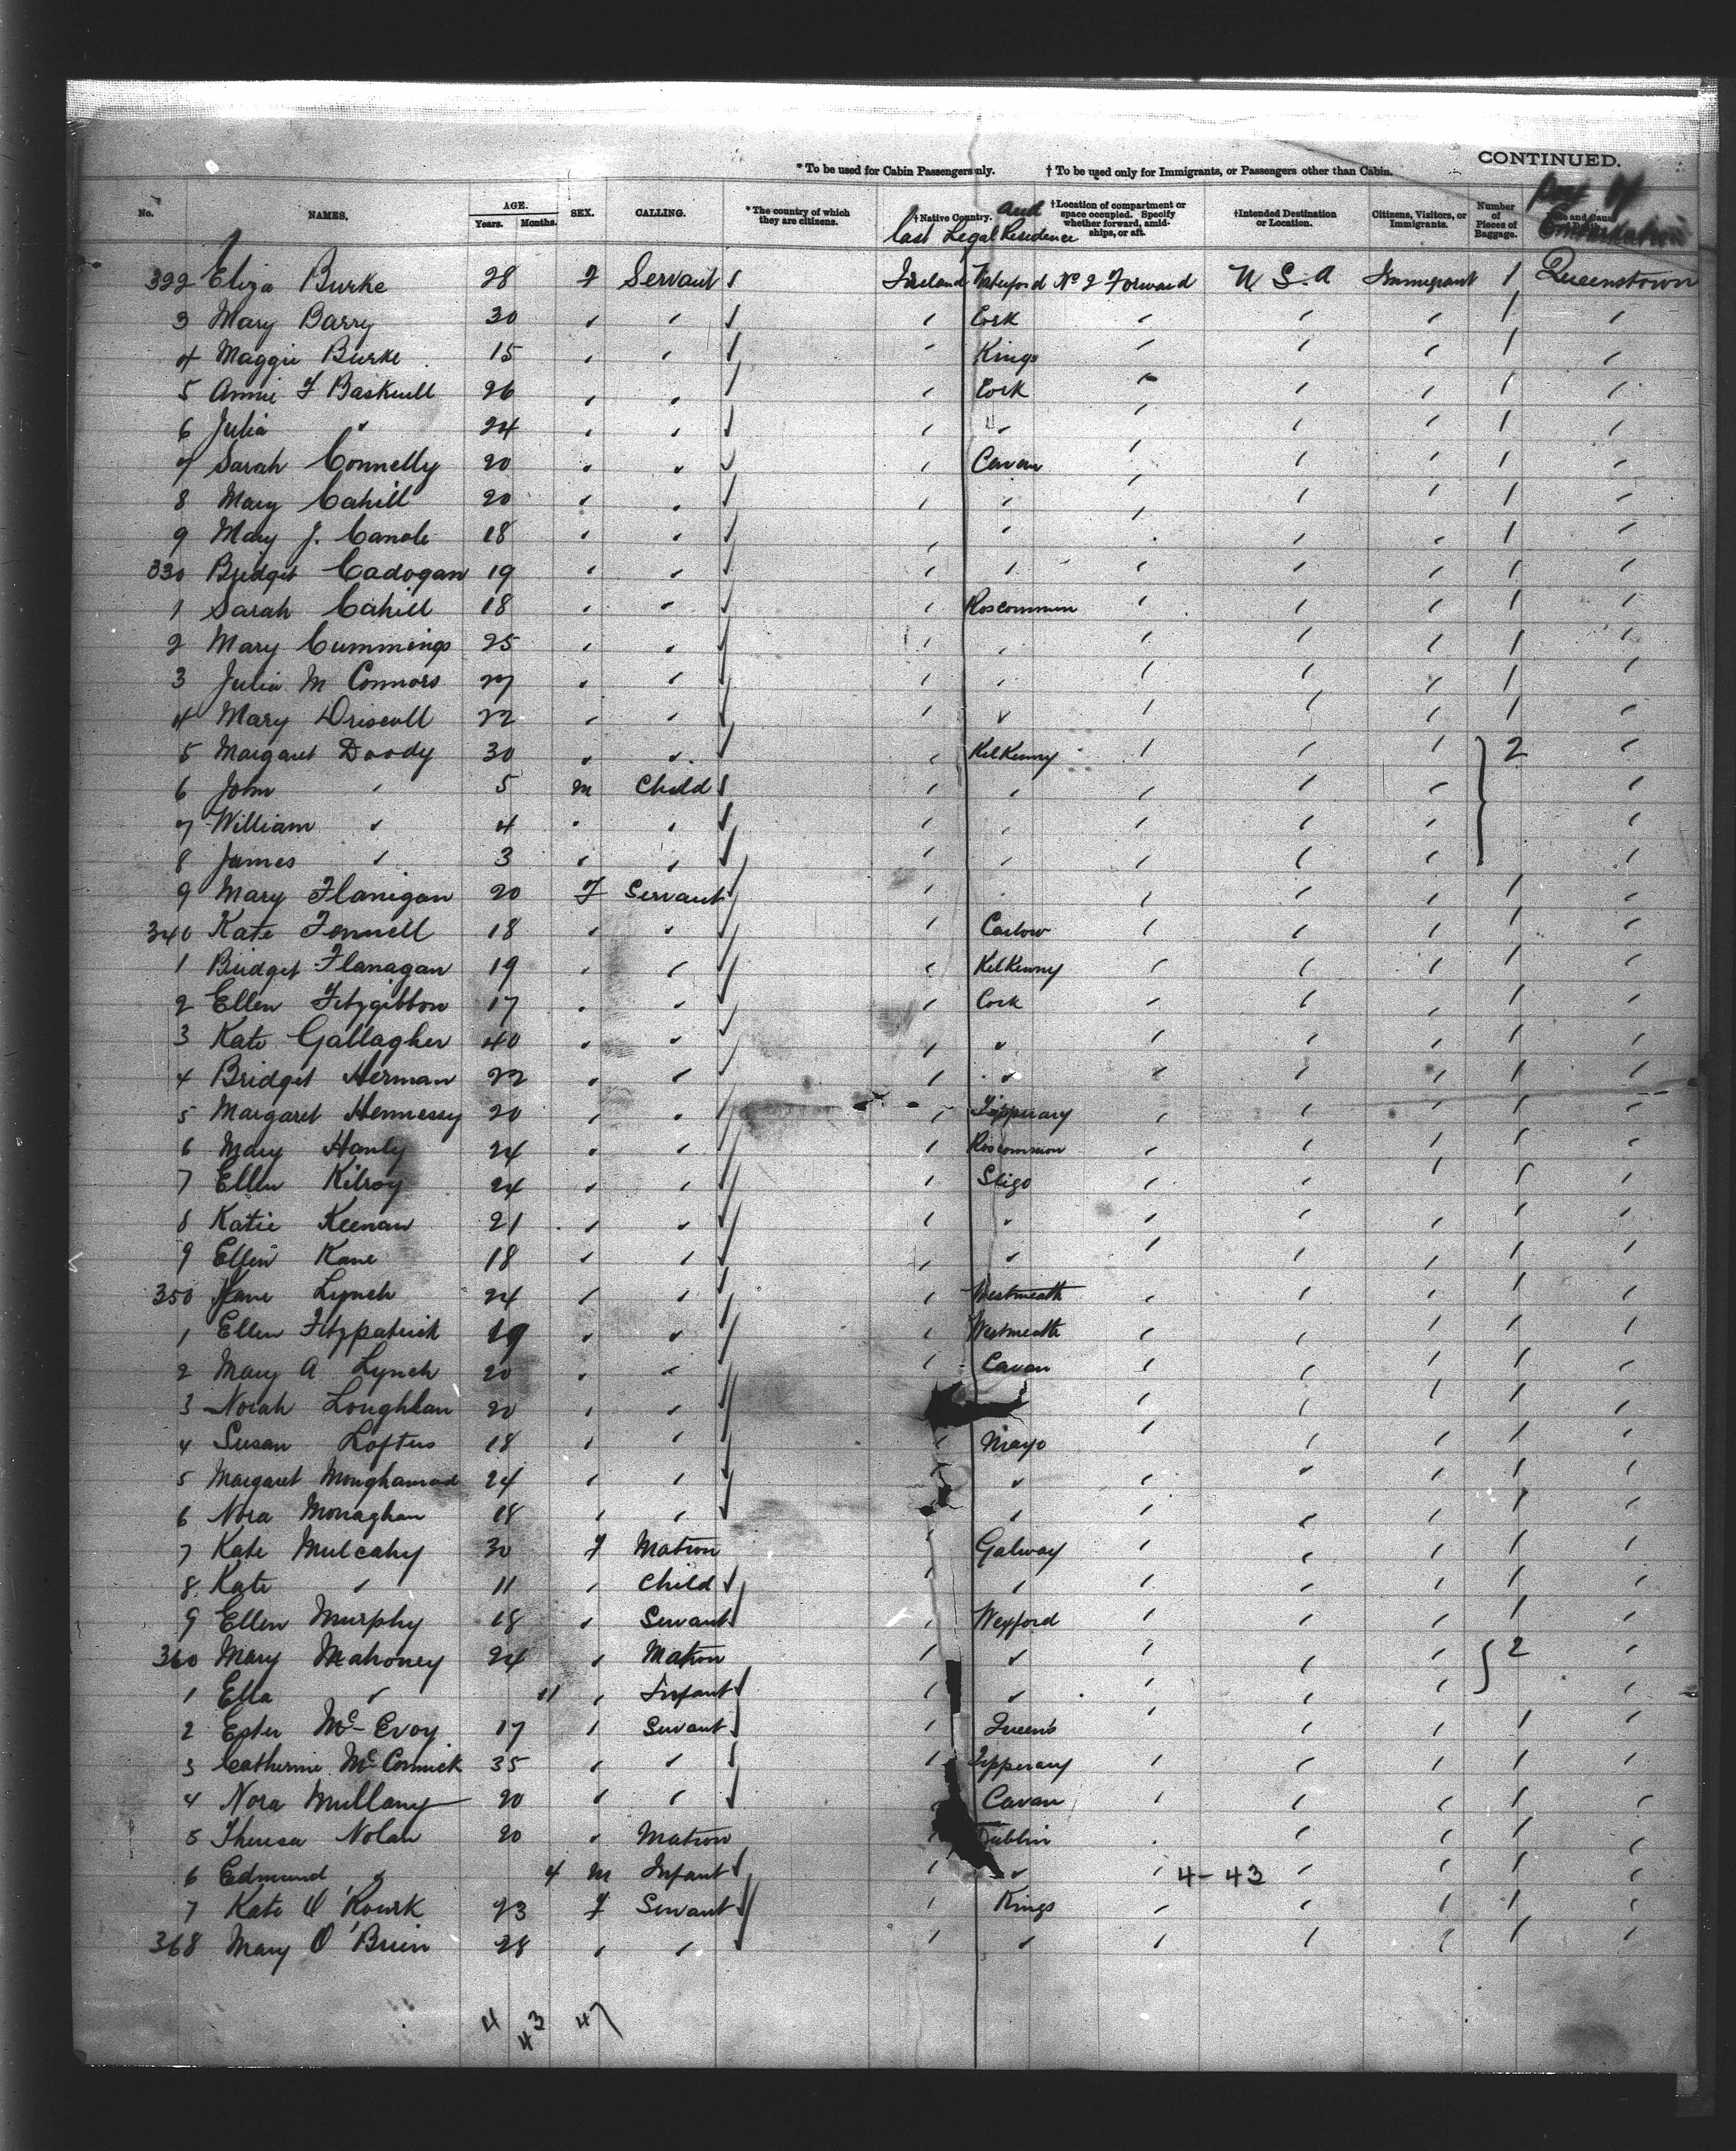 CONTINUED.
* To be used for Cabin Passengers nly. † To be used only for Immigrants, or Passengers other than Cabin.
No. NAMES. AGE. Years. Months. SEX. CALLING. * The country of which they are citizens. † Native Country. and last Legal Residence † Location of compartment or space occupied. Specify whether forward, amidships, or aft. † Intended Destination or Location. Citizens, Visitors, or Immigrants. Number of Pieces of Baggage. Port of Embarkation
322 Eliza Burke 28 F Servant Ireland Waterford No 2 Forward U S. A Immigrant 1 Queenstown
3 Mary Barry 30 " " " Cork " " " 1 "
4 Maggie Burke 15 " " " Kings " " " 1 "
5 Annie F Baskwell 26 " " " Cork " " " 1 "
6 Julia " 24 " " " " " " " 1 "
7 Sarah Connelly 20 " " " Cavan " " " 1 "
8 Mary Cahill 20 " " " " " " " 1 "
9 Mary J. 18 " " " " " " " 1 "
330 Bridget Cadogan 19 " " " " " " " 1 "
1 Sarah Cahill 18 " " " Roscommon " " " 1 "
2 Mary Cummings 25 " " " " " " " 1 "
3 Julia M Connors 27 " " " " " " " 1 "
4 Mary Driscoll 22 " " " " " " " 1 "
5 Margaret Doody 30 " " " KilKenny " " " 2 "
6 John " 5 M Child " " " " " "
7 William " 4 " " " " " " " "
8 James " 3 " " " " " " " "
9 Mary Flanigan 20 F Servant " " " " " 1 "
340 Kate Fennell 18 " " " Carlow " " " 1 "
1 Bridget Flanagan 19 " " " KilKenny " " " 1 "
2 Ellen Fitzgibbon 17 " " " Cork " " " 1 "
3 Kate Gallagher 40 " " " " " " " 1 "
4 Bridget Herman 22 " " " " " " " 1 "
5 Margaret Hennessy 20 " " " Tipperary " " " 1 "
6 Mary Hanly 24 " " " Roscommon " " " 1 "
7 Ellen Kilroy 24 " " " Sligo " " " 1 "
8 Katie Keenan 21 " " " " " " " 1 "
9 Ellen Kane 18 " " " " " " " 1 "
350 Jane Lynch 24 " " " Westmeath " " " 1 "
1 Ellen Fitzpatrick 19 " " " Westmeath " " " 1 "
2 Mary A Lynch 20 " " " Cavan " " " 1 "
3 Norah Loughlan 20 " " " " " " 1 "
4 Susan Loftus 18 " " " Mayo " " " 1 "
5 Margaret 24 " " " " " " " 1 "
6 Nora Monaghan 18 " " " " " " 1 "
7 Kate Mulcahy 30 F Matron " Galway " " " 1 "
8 Kate " 11 " Child " " " " " 1 "
9 Ellen Murphy 18 " Servant " Wexford " " " 1 "
360 Mary Mahoney 24 " Matron " " " " " 2 "
1 Ella " 11 " Infant " " " " " "
2 Ester Mc Evoy 17 " Servant " Queens " " " 1 "
3 Catherine Mc Cormick 35 " " " Tipperary " " " 1 "
4 Nora Mullany 20 " " Cavan " " " 1 "
5 Theresa Nolan 20 " Matron " Dublin " " " 1 "
6 Edmund " 4 M Infant " " " 4-43 " " 1 "
7 Kate O'Rourk 23 F Servant " Kings " " " 1 "
368 Mary O'Brien 28 " " " " " " " 1 "
4 43 47